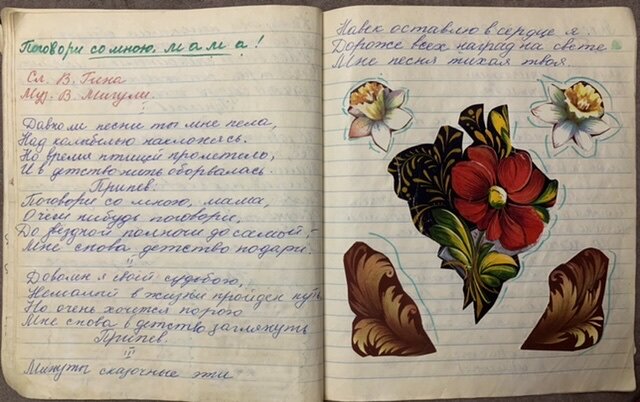 Поговори со мною, мама!
Сл. В. Гина
Муз. В. Мигули.
I
Давно ли песни ты мне пела,
Над колыбелью наклонясь.
Но время птицей пролетело,
И в детство нить оборвалась.
Припев.
Поговори со мною, мама,
О чём нибудь поговори,
До звёздной полночи до самой,
Мне снова детство подари.
II
Доволен я своей судьбою,
Немалый в жизни пройден путь
Но очень хочется порою
Мне снова в детство заглянуть
Припев.
III
Минуты сказочные эти
Навек оставлю в сердце я.
Дороже всех наград на свете
Мне песня тихая твоя.